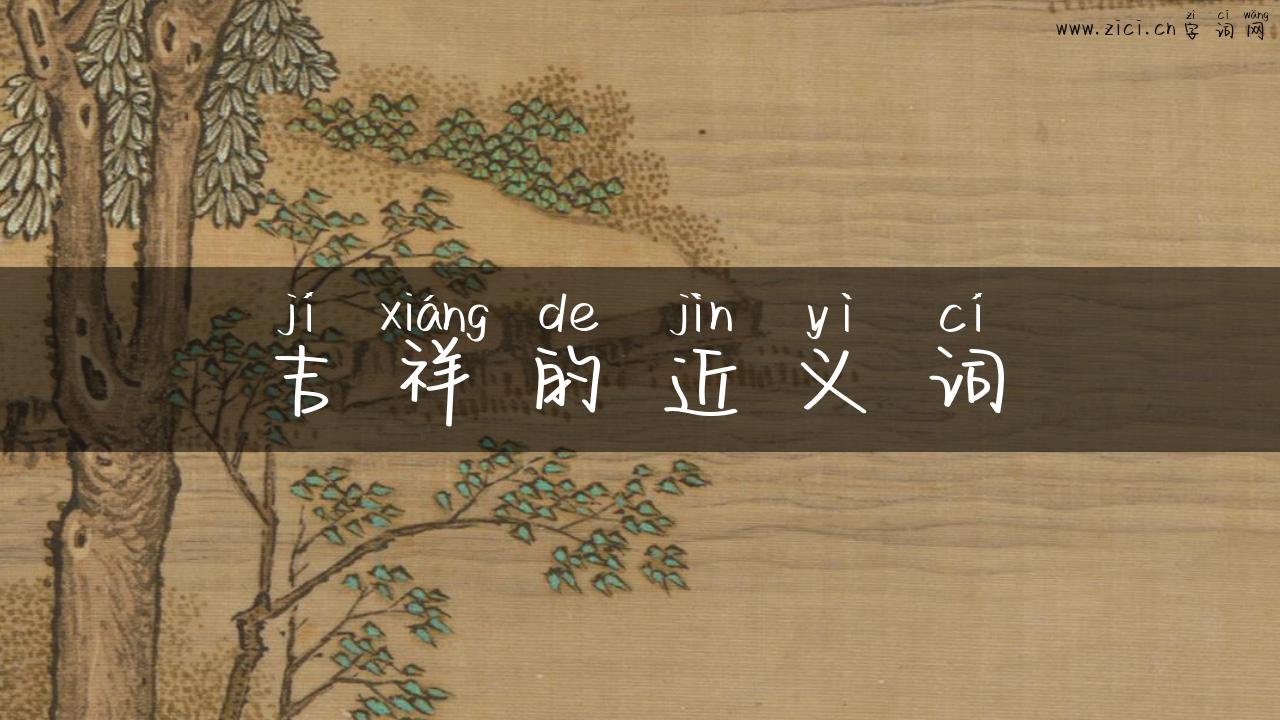 zì cí wǎng
www.zici.cn 字词网
jí xiáng de jìn yì cí
吉祥的近义词